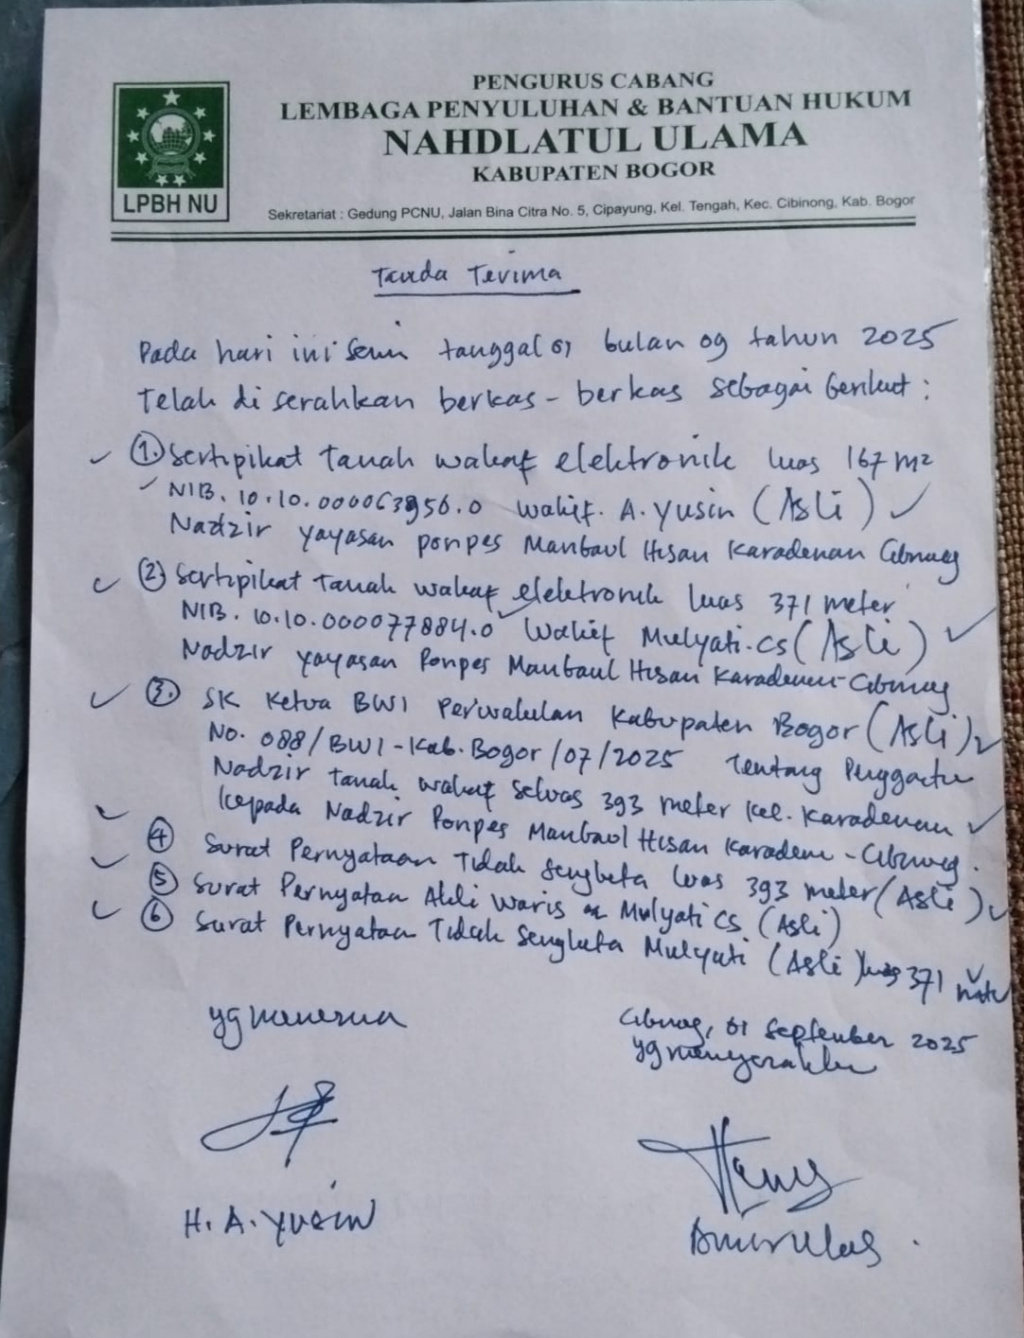 LPBH NU
PENGURUS CABANG
LEMBAGA PENYULUHAN & BANTUAN HUKUM
NAHDLATUL ULAMA
KABUPATEN BOGOR
Sekretariat : Gedung PCNU, Jalan Bina Citra No. 5, Cipayung, Kel. Tengah, Kec. Cibinong, Kab. Bogor
Tanda Terima
Pada hari ini Senin tanggal 01 bulan 09 tahun 2025
Telah di serahkan berkas - berkas sebagai berikut :
1. Sertipikat tanah wakaf elektronik luas 167 m2
NIB. 10.10.000063956.0 wakif. A. Yusin (Asli)
Nadzir yayasan ponpes Manbaul Hisan Karadenan Cibinong
2) Sertipikat tanah wakaf elektronik luas 371 meter
NIB. 10.10.000077884.0 Wakif Mulyati.cs (Asli)
Nadzir yayasan Ponpes Manbaul Hisan Karadenan-Cibinong
3. SK Ketua BWI Perwakilan Kabupaten Bogor (Asli)
No. 088/BWI-Kab.Bogor/07/2025 tentang Penggantian
Nadzir tanah wakaf seluas 393 meter Kel. Karadenan
kepada Nadzir Ponpes Manbaul Hisan Karadenan-Cibinong.
4 Surat Pernyataan Tidak Sengketa luas 393 meter (Asli)
5 Surat Pernyataan Ahli Waris Mulyati cs (Asli)
6 Surat Pernyataan Tidak Sengketa Mulyati (Asli) luas 371 meter
yg menerima
Cibinong, 01 September 2025
yg menyerahkan
H. A. Yusin